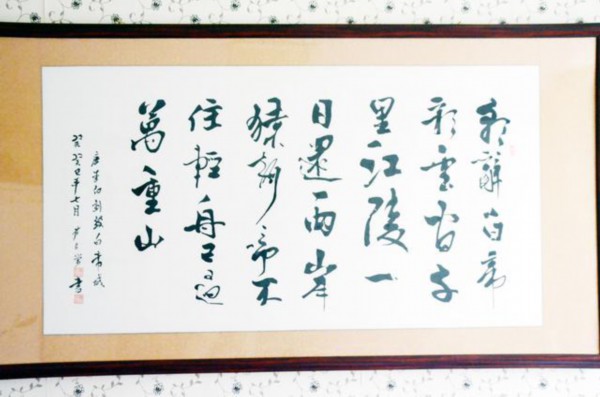 朝辭白帝
彩雲間千
里江陵一
日還兩岸
猿聲啼不
住輕舟已過
萬重山
唐李白發白帝城
癸巳年七月 書